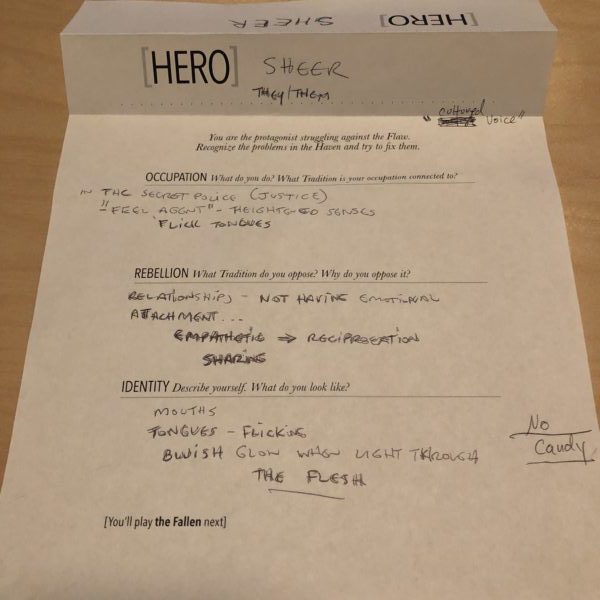 [HERO] SHEER
[HERO] SHEER
THEY/THEM
"cultured voice"
You are the protagonist struggling against the Flaw.
Recognize the problems in the Haven and try to fix them.
OCCUPATION What do you do? What Tradition is your occupation connected to?
IN THE SECRET POLICE (JUSTICE)
"FEEL AGENT" - HEIGHTENED SENSES
FLICK TONGUES
REBELLION What Tradition do you oppose? Why do you oppose it?
RELATIONSHIPS - NOT HAVING EMOTIONAL
ATTACHMENT...
EMPATHETIC => RECIPROCATION
SHARING
IDENTITY Describe yourself. What do you look like?
MOUTHS
TONGUES - FLICKING
BLUISH GLOW WHEN LIGHT THROUGH
THE FLESH
No
Candy
[You'll play the Fallen next]